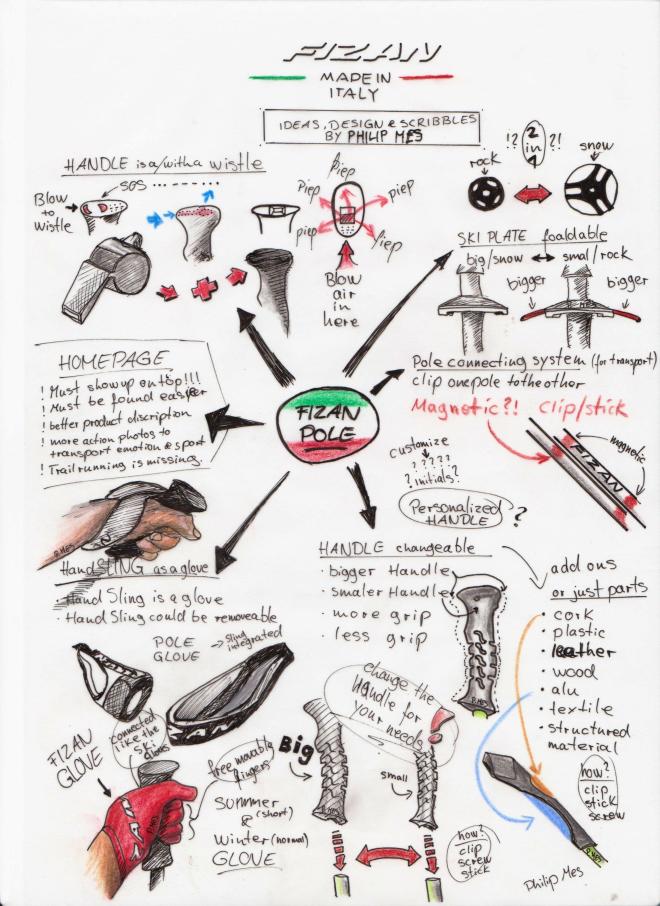 FIZAN
MADE IN
ITALY
IDEAS, DESIGN & SCRIBBLES
BY PHILIP MES
HANDLE is a/with a wistle
SOS
Blow
to
Wistle
Piep
Piep
piep
piep
piep
Blow
air
in
here
!? 2 in 1 ?!
rock
snow
SKI PLATE foaldable
big/snow ↔ smal/rock
bigger
bigger
MES
HOMEPAGE
! Must show up on top!!!
! Must be found easyer
! better product discription
! more action photos to
transport emotion & sport
! Trail running is missing.
FIZAN
POLE
Pole connecting system (for transport)
clip one pole to the other
Magnetic?! Clip/stick
magnetic
FIZAN
customize
? ? ? ? ?
? initials?
Personalized
HANDLE ?
Hand SLING as a glove
· Hand Sling is a glove
· Hand Sling could be removeable
POLE
GLOVE
→ Sling
integrated
HANDLE changeable
· bigger Handle
· smaler Handle
· more grip
· less grip
add ons
or just parts
· cork
· plastic
· leather
· wood
· alu
· textile
· structured
material
how?
clip
stick
screw
Philip Mes
change the
Handle for
your needs
Big
small
how?
clip
screw
stick
FIZAN
GLOVE
connected
like the
ski
gloves
free movable
fingers
SUMMER
(short)
&
Winter (normal)
GLOVE